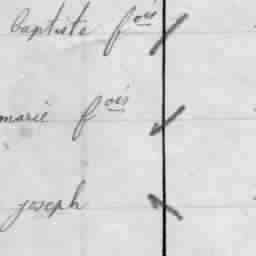 baptiste fois
marie fois
joseph